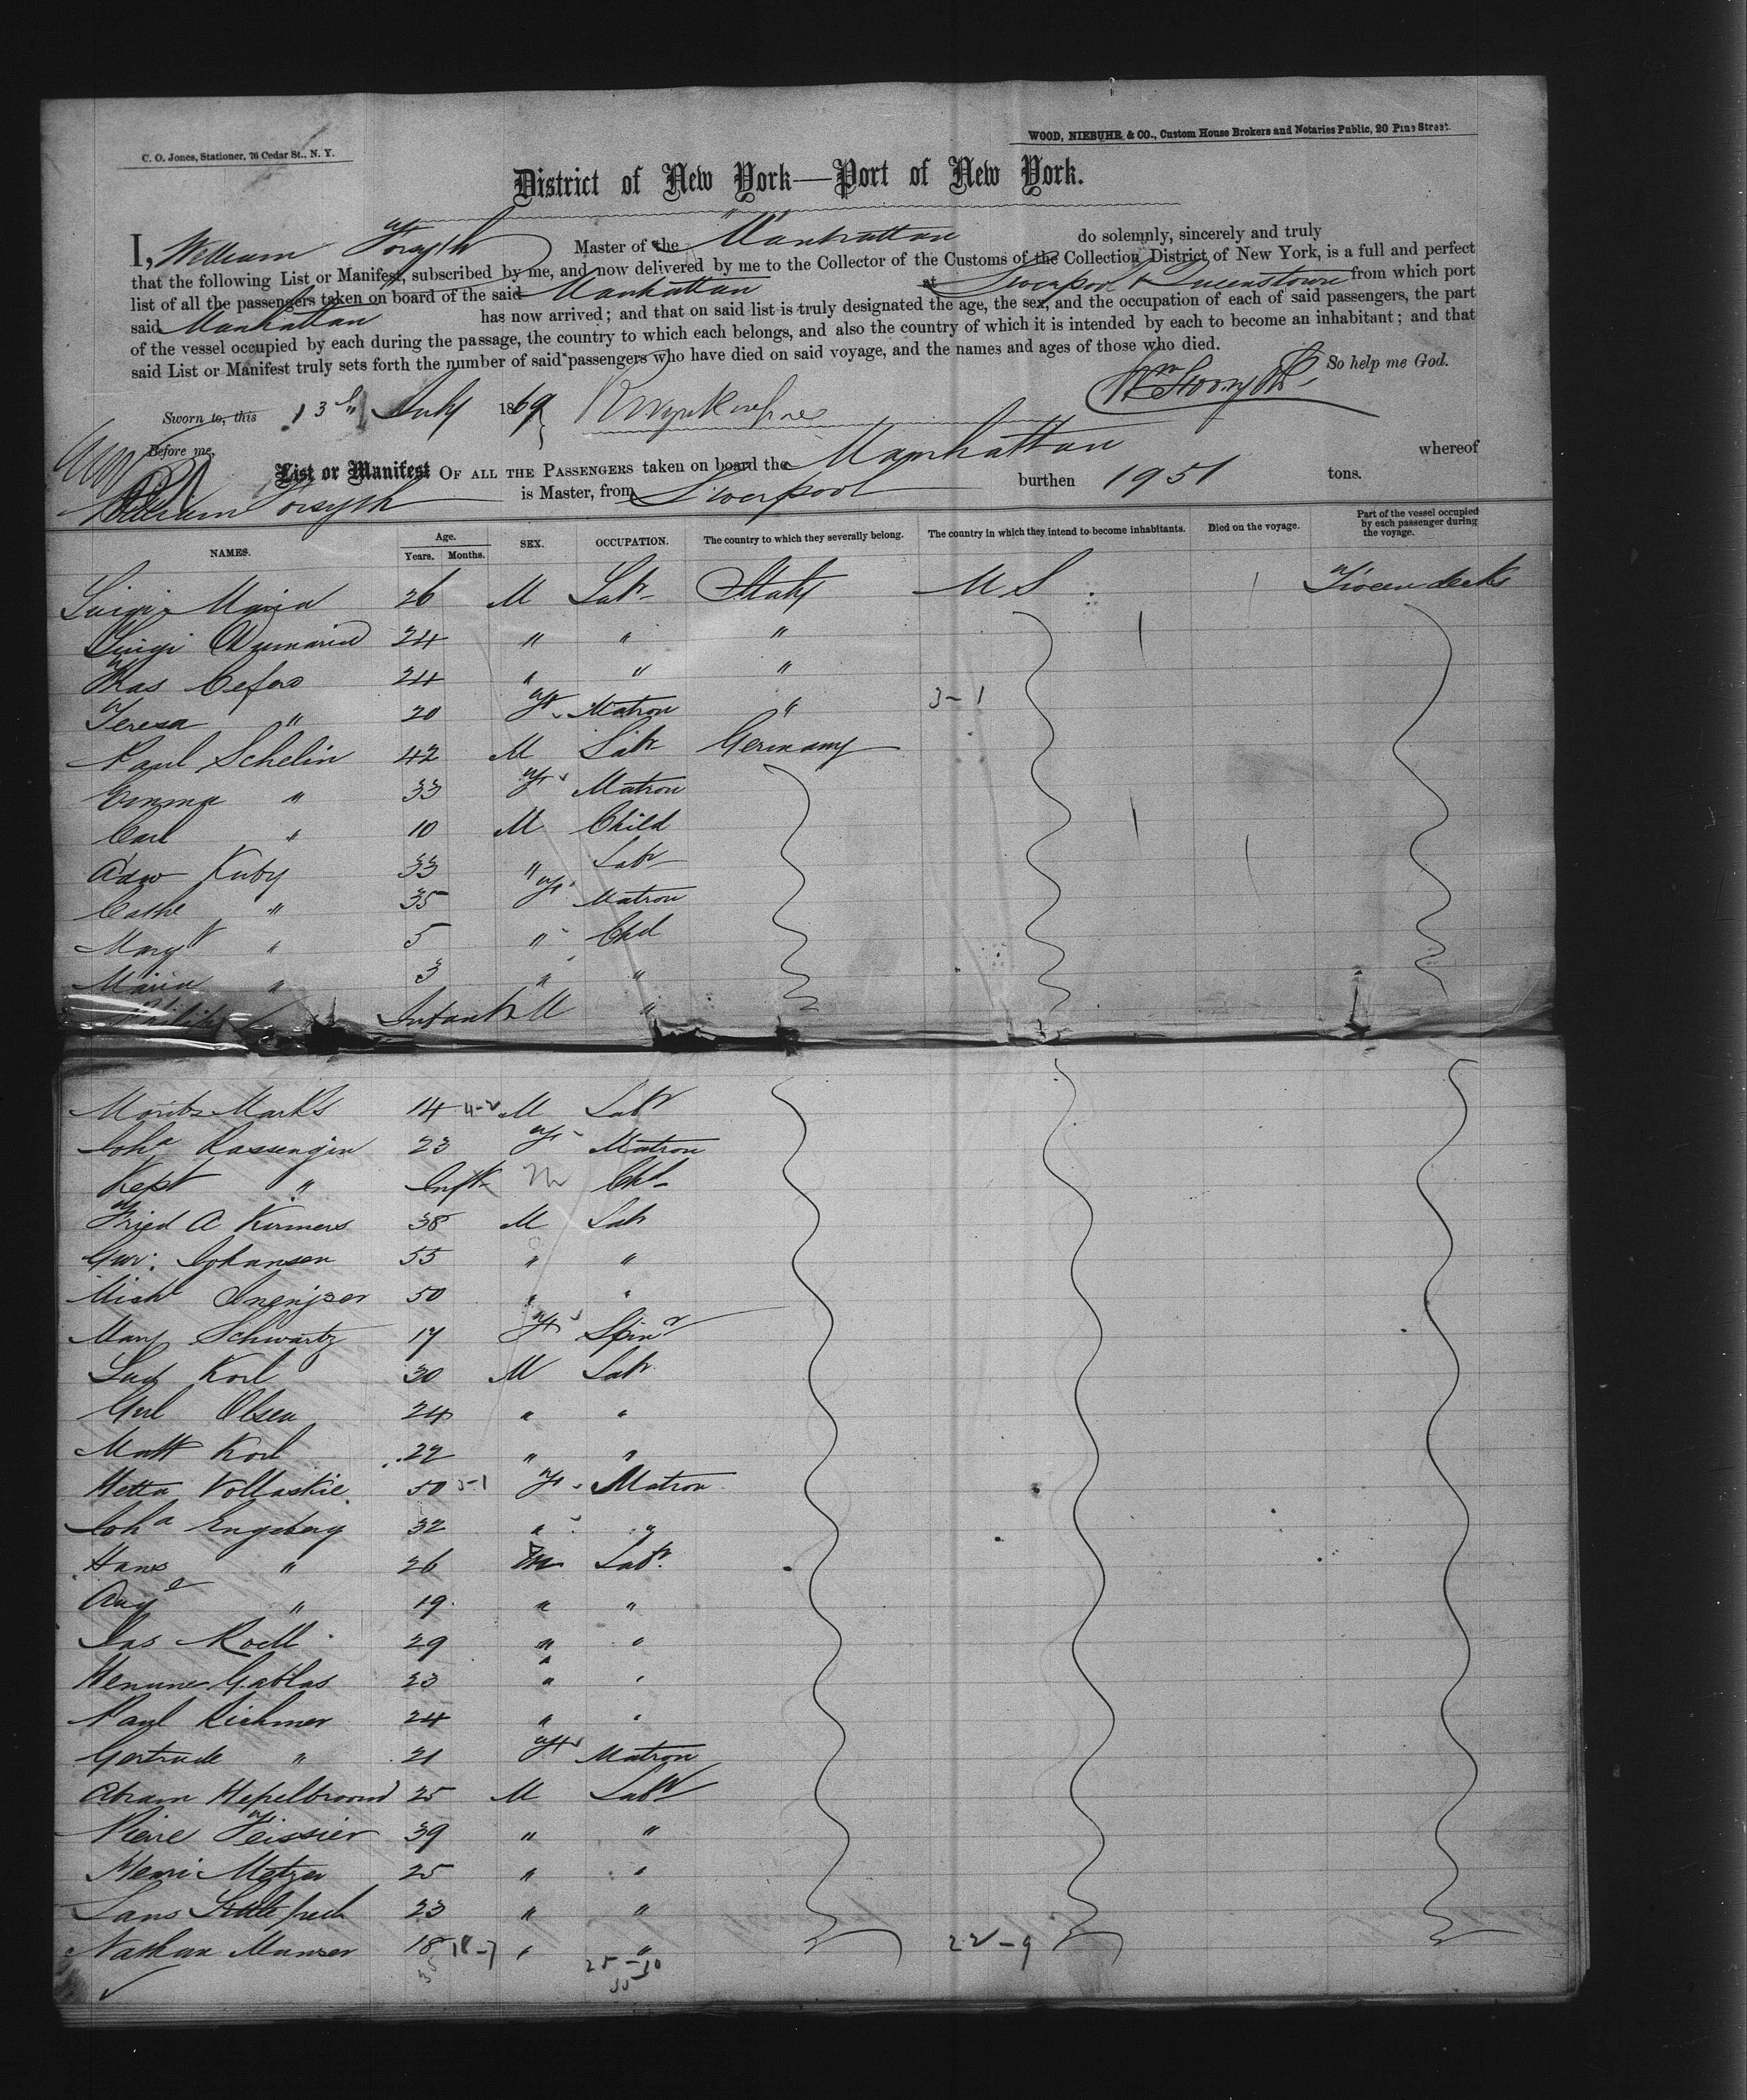 C. O. Jones, Stationer, 76 Cedar St., N. Y.
WOOD, NIEBUHR & CO., Custom House Brokers and Notaries Public, 20 Pine Street.
District of New York—Port of New York.
I, William Forsyth Master of the Manhattan do solemnly, sincerely and truly
that the following List or Manifest, subscribed by me, and now delivered by me to the Collector of the Customs of the Collection District of New York, is a full and perfect
list of all the passengers taken on board of the said Manhattan at Liverpool & Queenstown from which port
said Manhattan has now arrived; and that on said list is truly designated the age, the sex, and the occupation of each of said passengers, the part
of the vessel occupied by each during the passage, the country to which each belongs, and also the country of which it is intended by each to become an inhabitant; and that
said List or Manifest truly sets forth the number of said passengers who have died on said voyage, and the names and ages of those who died.
So help me God.
Wm Forsyth
Sworn to, this 13th July 1869
Before me,
List or Manifest OF ALL THE PASSENGERS taken on board the Manhattan whereof
William Forsyth is Master, from Liverpool burthen 1951 tons.
NAMES. Age. Years. Months. SEX. OCCUPATION. The country to which they severally belong. The country in which they intend to become inhabitants. Died on the voyage. Part of the vessel occupied by each passenger during the voyage.
Luigi Maria 26 M Labr Italy U S
Luigi 24 " " "
Thas Cefero 24 " " "
Teresa " 20 F Matron " 3-1
Paul Schelin 42 M Labr Germany
Emma " 33 F Matron
Carl " 10 M Child
Adw Kuby 33 " Labr
Cathe " 35 F Matron
Mary " 5 " Chd
Maria " 3 " "
Infant M "
Moritz Marks 14 4-2 M Labr
Joha Rassengin 23 F Matron
Kept " Inft M Chd
Fried A Kirmers 38 M Labr
Johansen 55 " "
Michl 50 " "
Mary Schwartz 17 F Spinr
Lud Korl 30 M Labr
Olsen 24 " "
Matt Korl 22 " "
Metta Vollaskie 50 3-1 F Matron
Joha Engsberg 32 " "
Hans " 26 M Labr
Auge " 19 " "
Jas Roell 29 " "
Gablas 23 " "
Paul Richmer 24 " "
Gertrude " 21 F Matron
Abram Hepelbroond 25 M Labr
Pierre Teissier 39 " "
Henri Metzer 25 " "
Lans 23 " "
Nathan Munser 18 18-7 " " 22-9
35 25-10
35